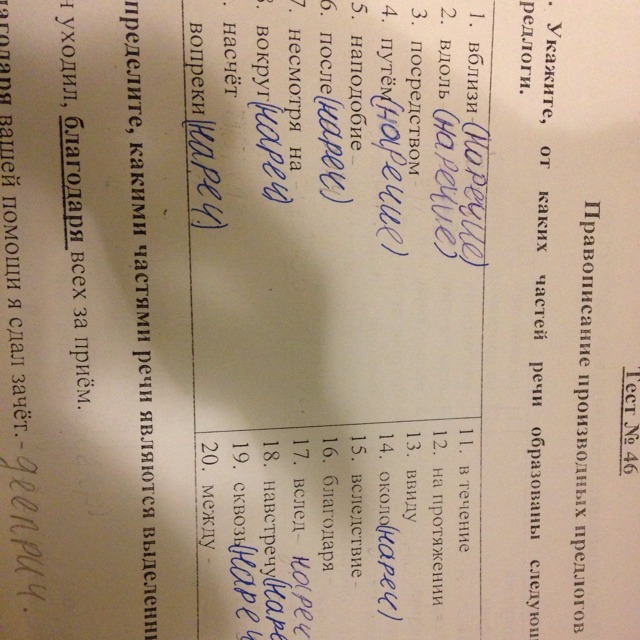 Тест № 46
Правописание производных предлогов
. Укажите, от каких частей речи образованы следующ
редлоги.
1. вблизи (наречие)
2. вдоль (наречие)
3. посредством -
4. путём (наречие)
5. наподобие -
6. после (нареч)
7. несмотря на -
8. вокруг (нареч)
. насчёт
вопреки (нареч)
11. в течение
12. на протяжении -
13. ввиду
14. около (нареч)
15. вследствие -
16. благодаря -
17. вслед - нареч
18. навстречу (наре
19. сквозь (наре
20. между -
пределите, какими частями речи являются выделенн
н уходил, благодаря всех за приём.
лагодаря вашей помощи я сдал зачёт. - дееприч.